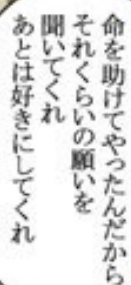 命を助けてやったんだから
それくらいの願いを
聞いてくれ
あとは好きにしてくれ